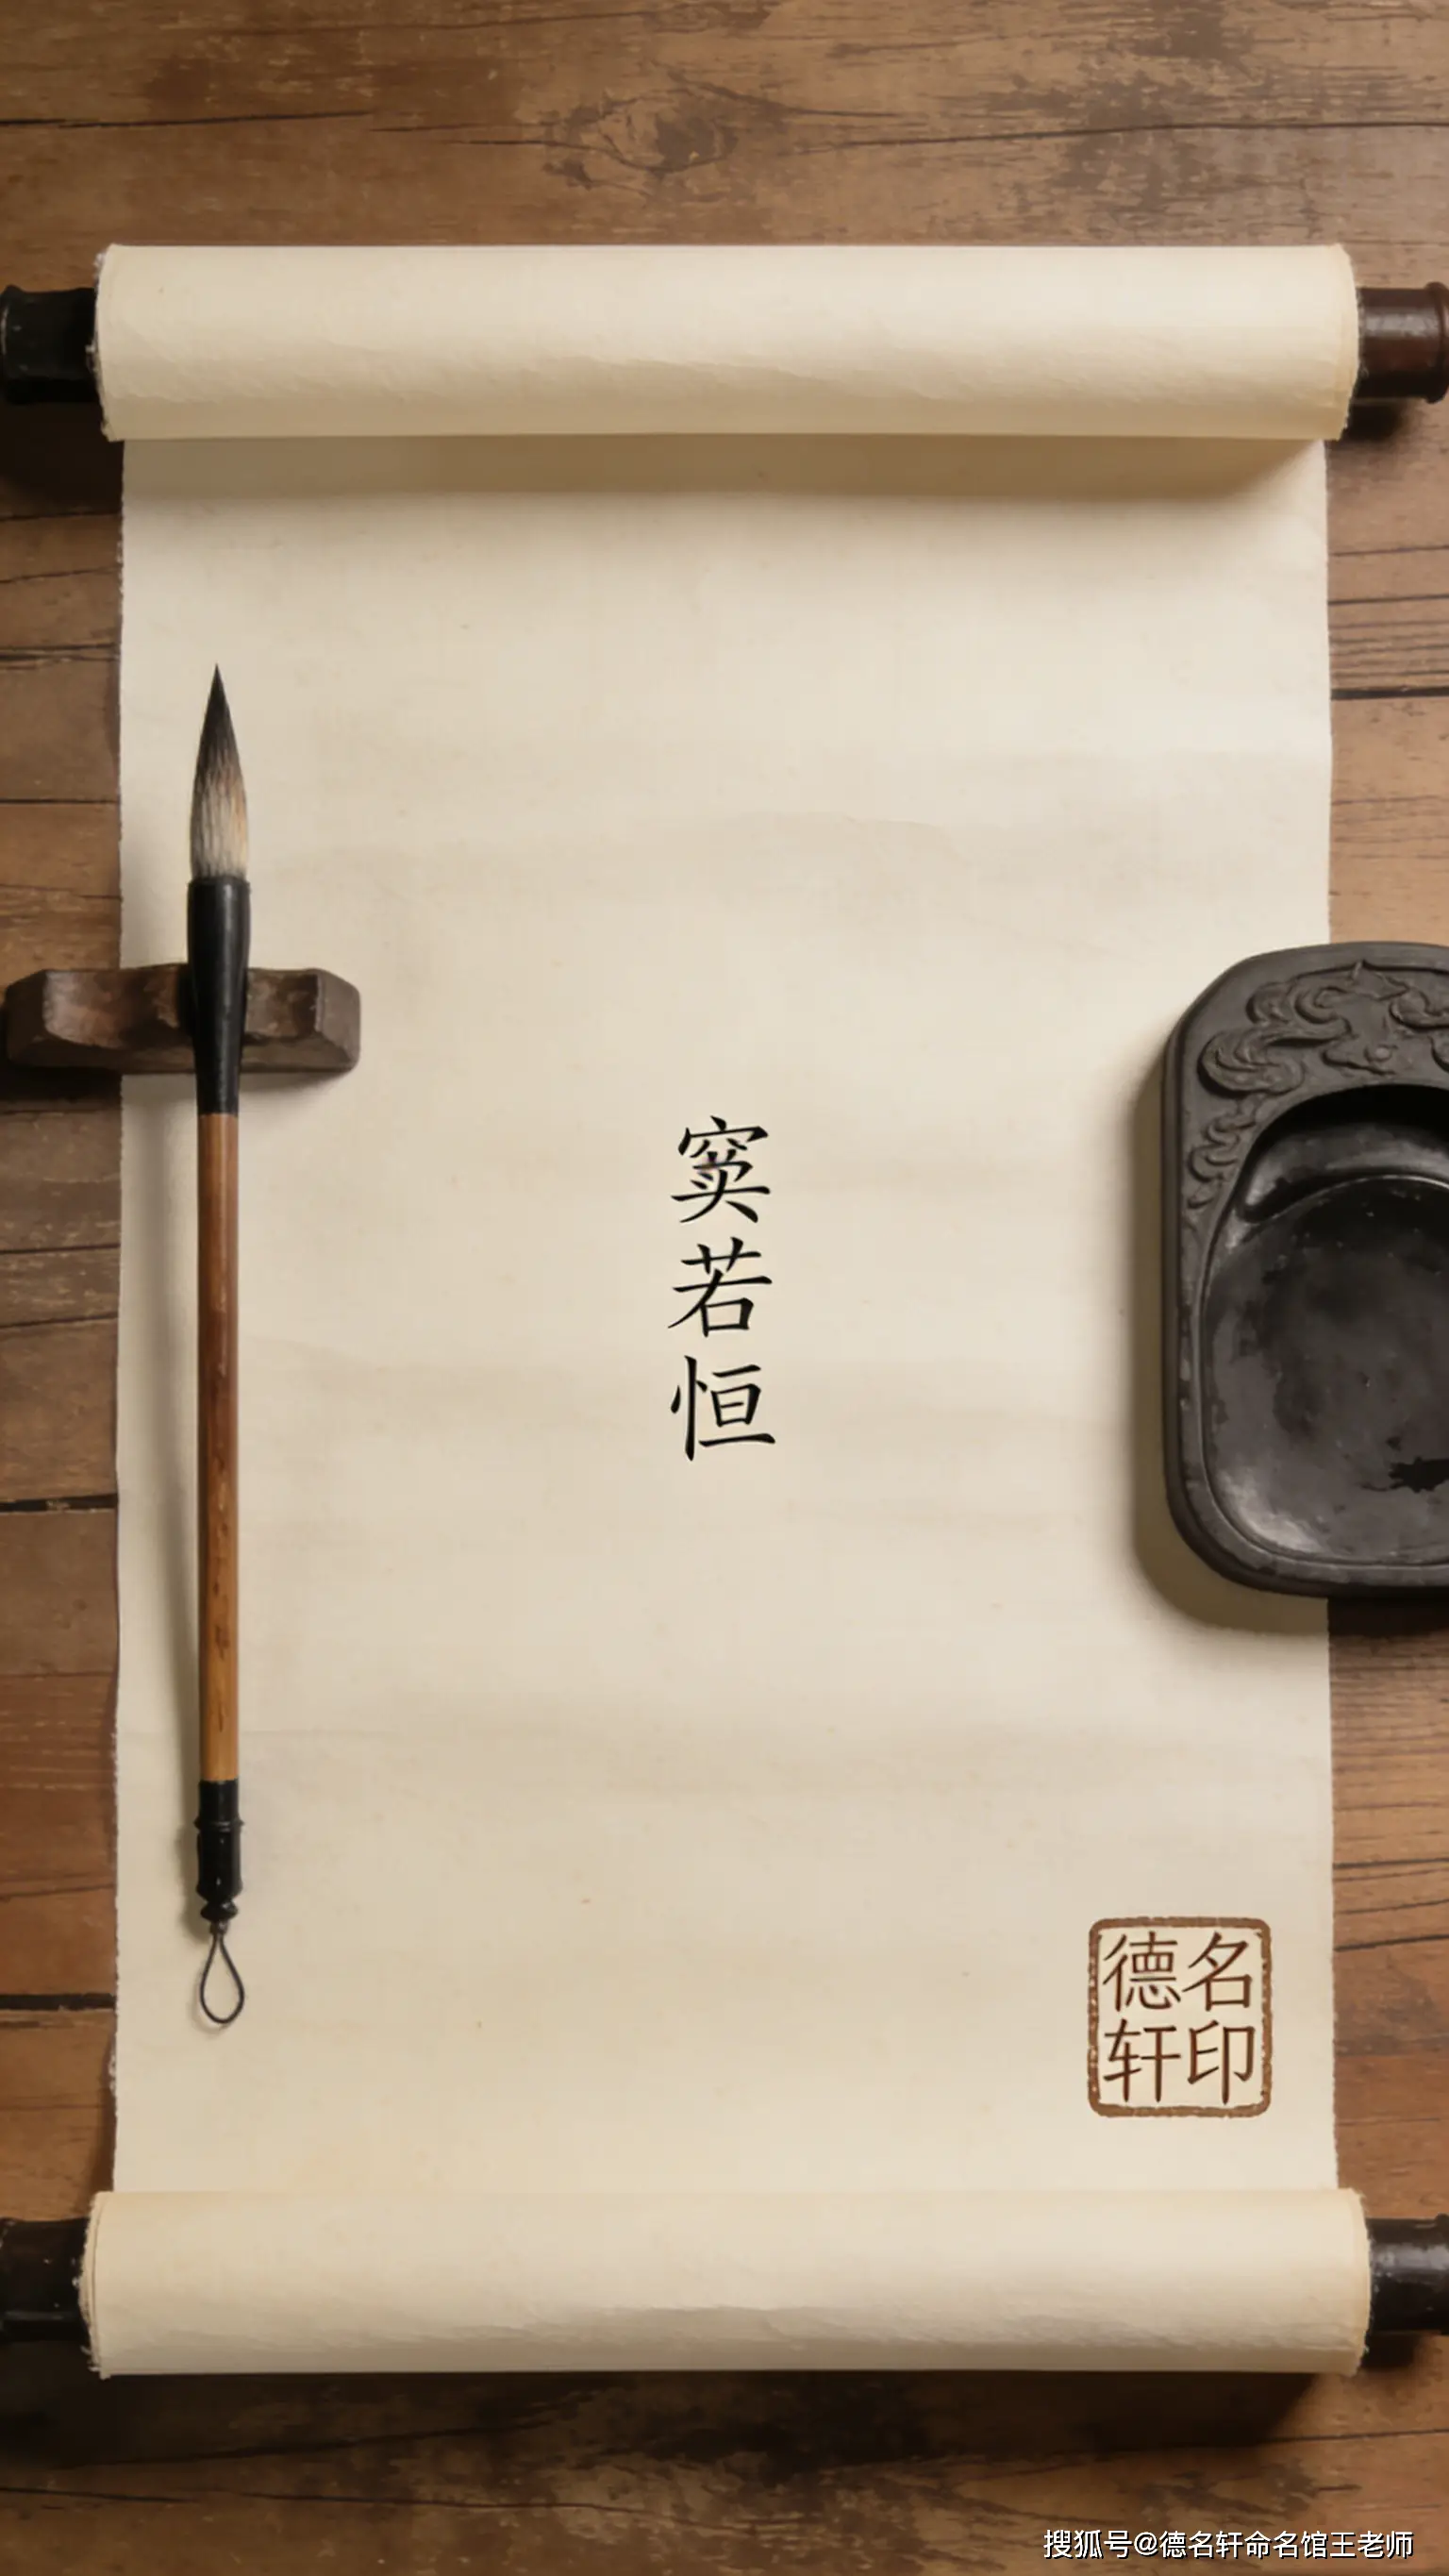 窦若恒
德名
轩印
搜狐号@德名轩命名馆王老师